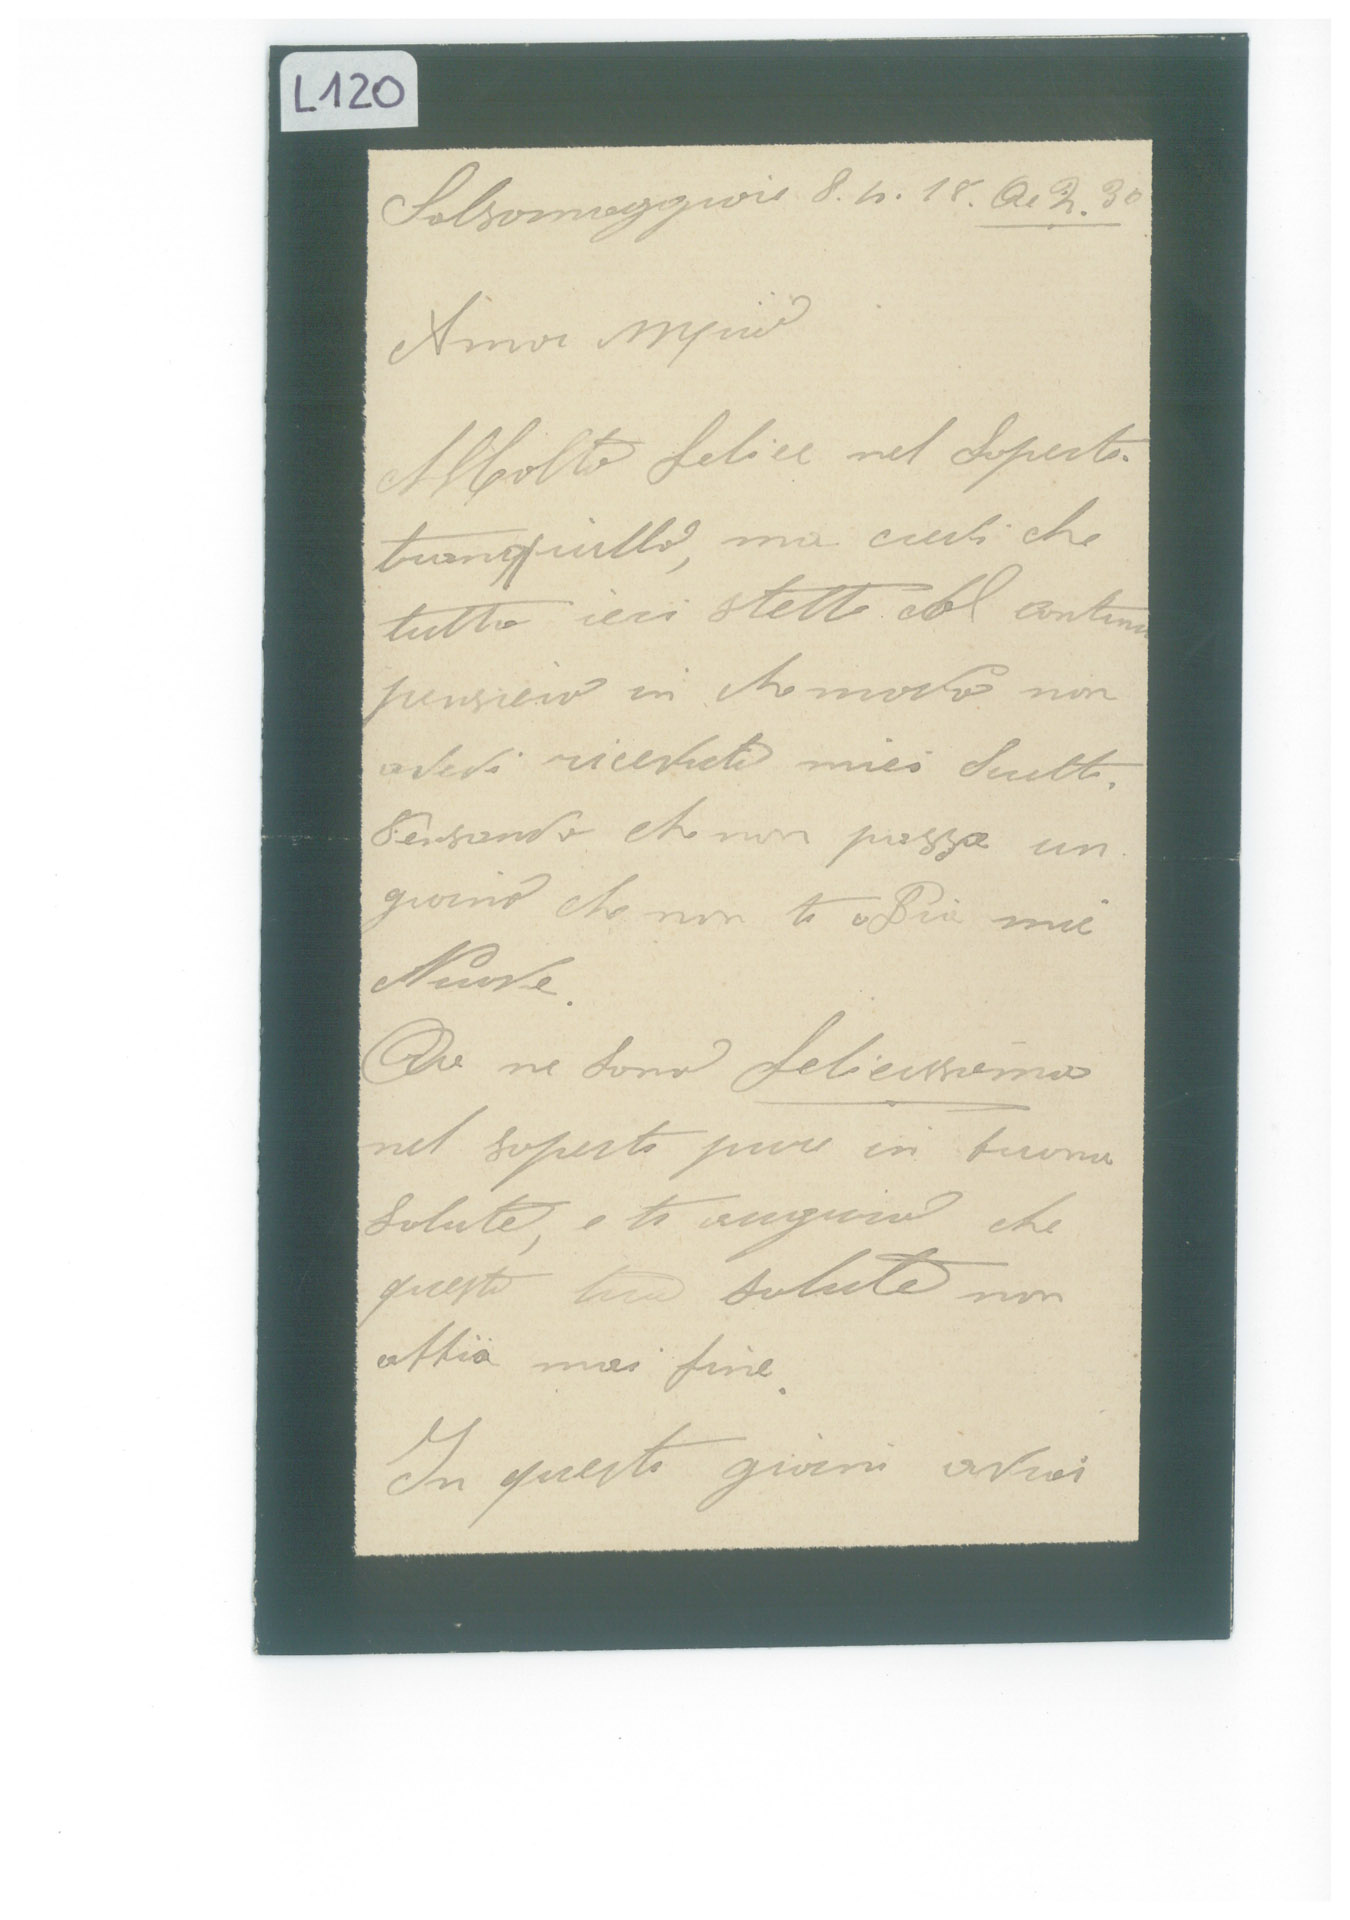 L120
Salsomaggiore 8. 4. 18. Ore 2. 30
Amor Myio
Molto felice nel saperti
tranquillo, ma credi che
tutto ieri stetti col continu
pensiero in che modo non
avevi ricevuto miei scritti.
Pensando che non passa un
giorno che non ti o Dia mie
Nuove.
Ora ne sono felicissima
nel saperti pure in buona
salute, e ti auguro che
questa tua salute non
abbia mai fine.
In questi giorni avrai